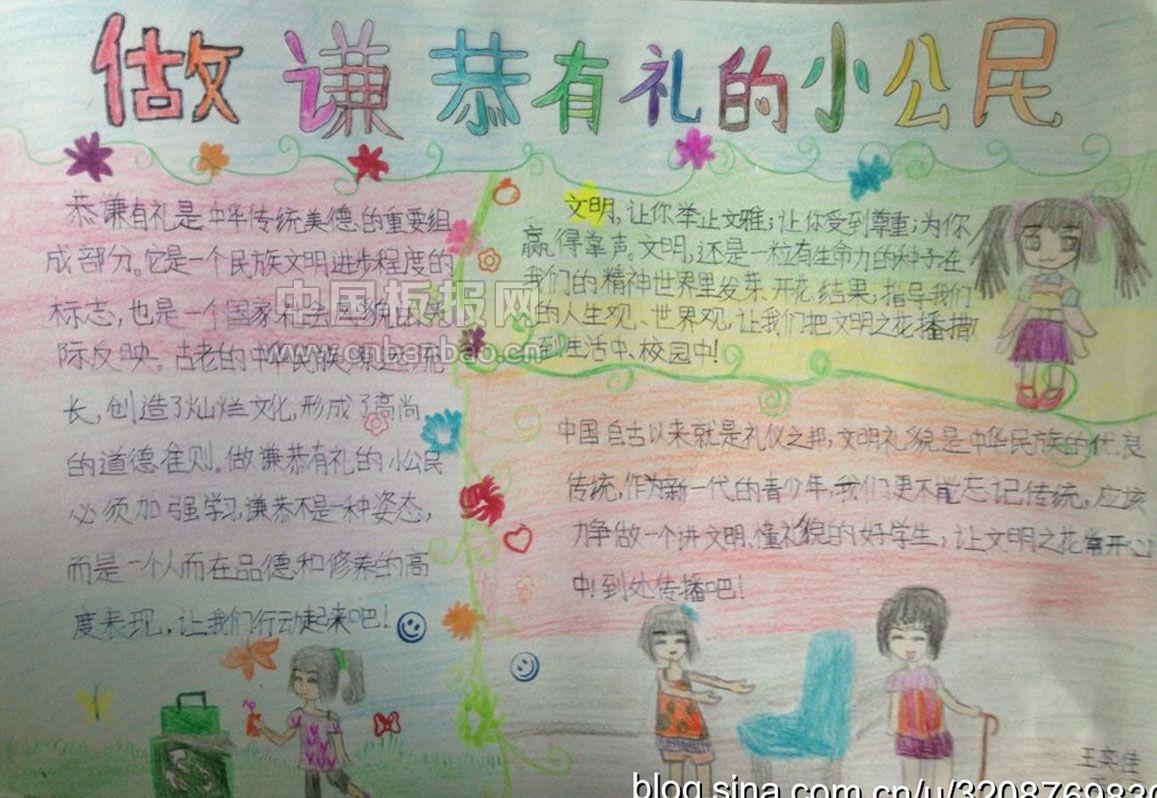 做谦恭有礼的小公民
恭谦有礼是中华传统美德的重要组
成部分。它是一个民族文明进步程度的
标志，也是一个国家社会风貌的实
际反映。古老的中华民族源远流
长，创造了灿烂文化，形成了高尚
的道德准则。做谦恭有礼的小公民
必须加强学习，谦恭不是一种姿态，
而是一个人而在品德和修养的高
度表现，让我们行动起来吧！
文明，让你举止文雅；让你受到尊重；为你
赢得掌声。文明，还是一粒有生命力的种子在
我们的精神世界里发芽、开花、结果，指导我们
的人生观、世界观，让我们把文明之花播撒
到生活中、校园中！
中国自古以来就是礼仪之邦，文明礼貌是中华民族的优良
传统，作为新一代的青少年，我们更不能忘记传统，应该
力争做一个讲文明、懂礼貌的好学生，让文明之花常开心
中！到处传播吧！
中国板报网
www.cnbanbao.cn
王奕佳
blog.sina.com.cn/u/3208769830